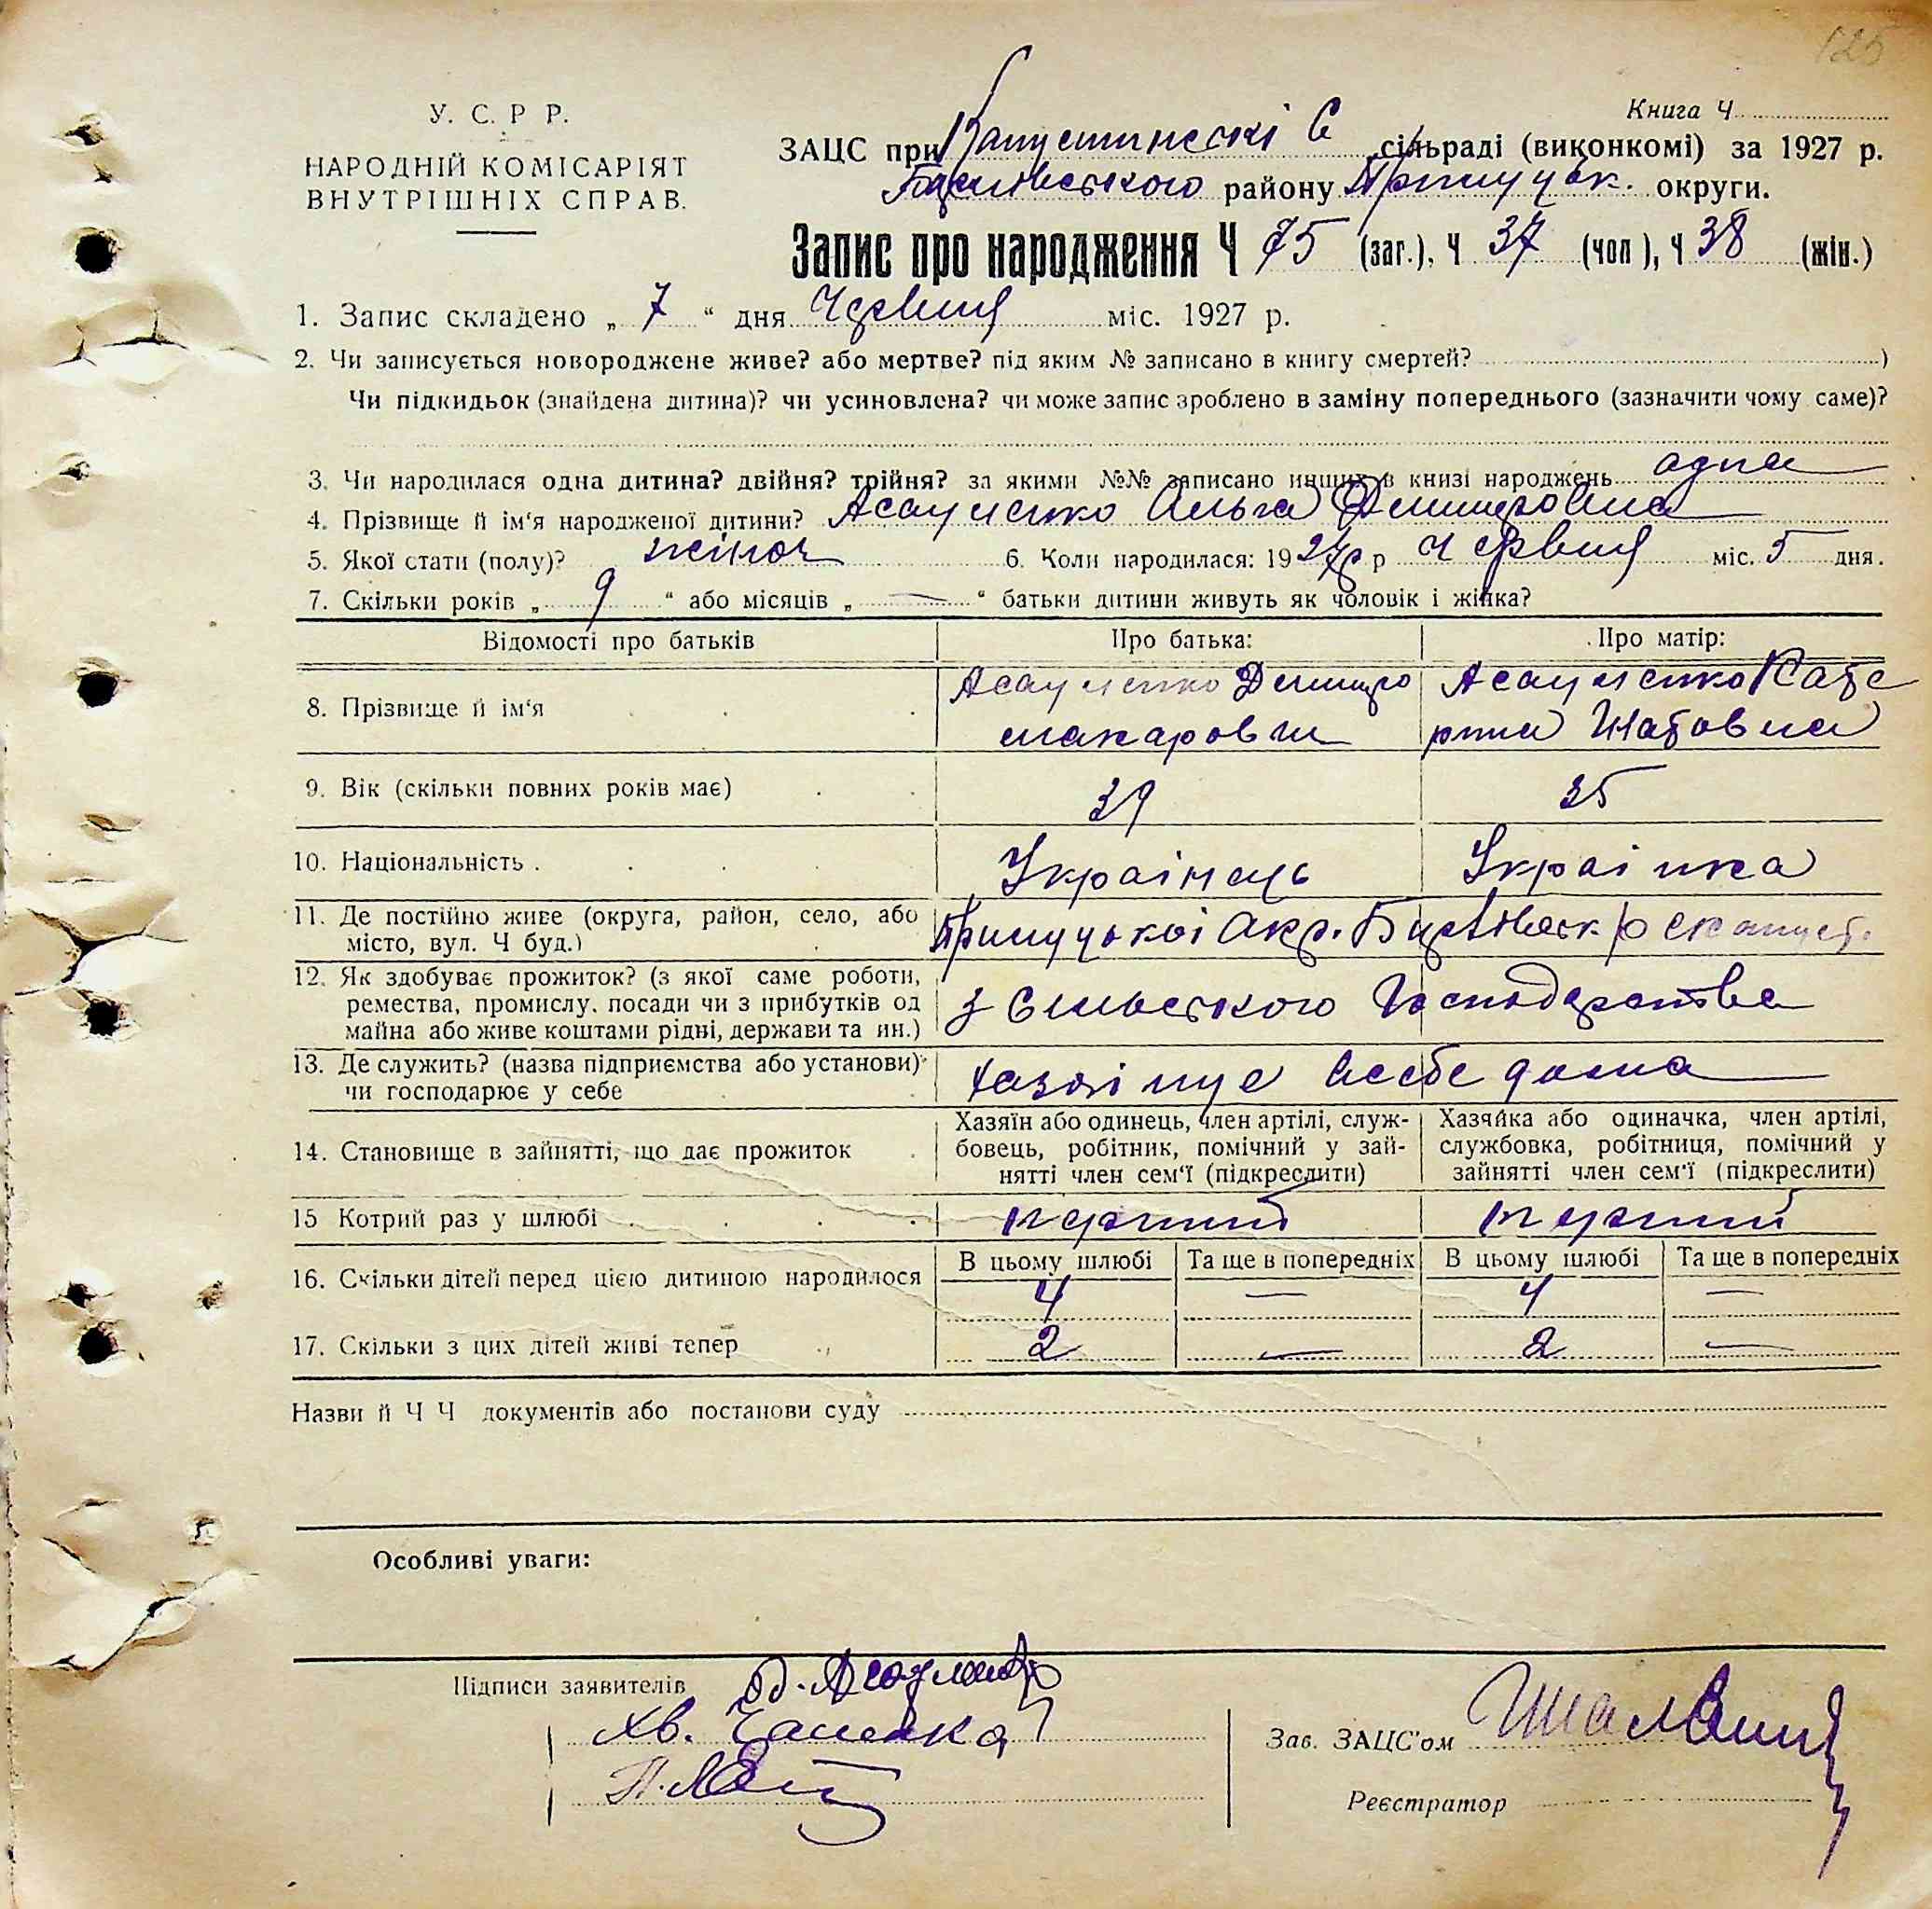 125
Книга Ч
У. С. Р Р.
НАРОДНІЙ КОМІСАРІЯТ
ВНУТРІШНІХ СПРАВ.
ЗАЦС при Капустинскі С сільраді (виконкомі) за 1927 р.
району Прилуцьк. округи.
Запис про народження Ч 75 (заг.), Ч 37 (чол), Ч 38 (жін.)
1. Запис складено „ 7 “ дня Червня міс. 1927 р.
2. Чи записується новороджене живе? або мертве? під яким № записано в книгу смертей? )
Чи підкидьок (знайдена дитина)? чи усиновлена? чи може запис зроблено в заміну попереднього (зазначити чому саме)?
3. Чи народилася одна дитина? двійня? трійня? за якими №№ записано инших в книзі народжень одна
4. Прізвище й ім‘я народженої дитини? Асауленко Ольга Дмитровна
5. Якої стати (полу)? жіноч 6. Коли народилася: 1927р р Червня міс. 5 дня.
7. Скільки років „ 9 “ або місяців „ — “ батьки дитини живуть як чоловік і жінка?
Відомості про батьків Про батька: Про матір:
8. Прізвище й ім‘я Асауленко Дмитро Асауленко Кате
макарович рина
9. Вік (скільки повних років має) 39 35
10. Національність . Українець Українка
11. Де постійно живе (округа, район, село, або
місто, вул. Ч буд.) Прилуцької Окр.
12. Як здобуває прожиток? (з якої саме роботи,
ремества, промислу, посади чи з прибутків од
майна або живе коштами рідні, держави та ин.) з Сільського Господарства
13. Де служить? (назва підприємства або установи)
чи господарює у себе хазяінує всебе дома
14. Становище в зайнятті, що дає прожиток
Хазяїн або одинець, член артілі, служ-
бовець, робітник, помічний у зай-
нятті член сем‘ї (підкреслити)
Хазяйка або одиначка, член артілі,
службовка, робітниця, помічний у
зайнятті член сем‘ї (підкреслити)
15 Котрий раз у шлюбі перший перший
В цьому шлюбі Та ще в попередніх В цьому шлюбі Та ще в попередніх
16. Скільки дітей перед цією дитиною народилося 4 — 4 —
17. Скільки з цих дітей живі тепер 2 — 2 —
Назви й Ч Ч документів або постанови суду
Особливі уваги:
Підписи заявителів
Хв.
Зав. ЗАЦС’ом
Реєстратор